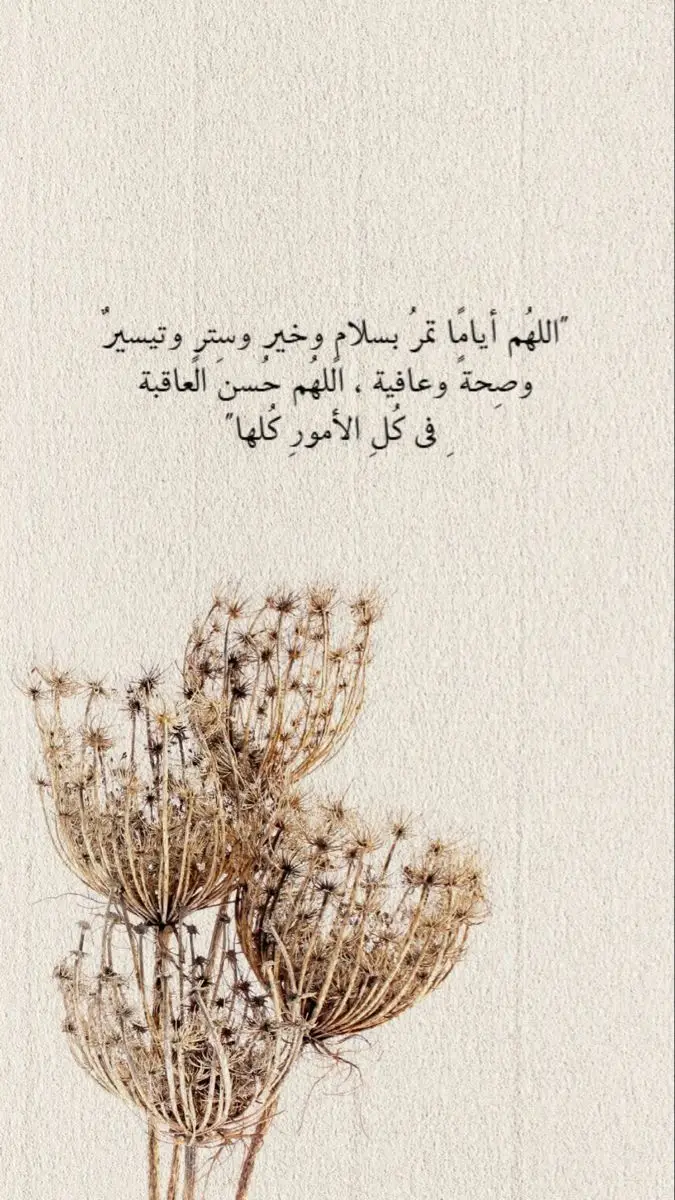 "اللهُم أيامًا تمرُ بسلامٍ وخير وسترٍ وتيسيرٌ
وصِحةً وعافية ، اللهُم حُسنَ العاقبة
فِى كُلِ الأمورِ كُلها"